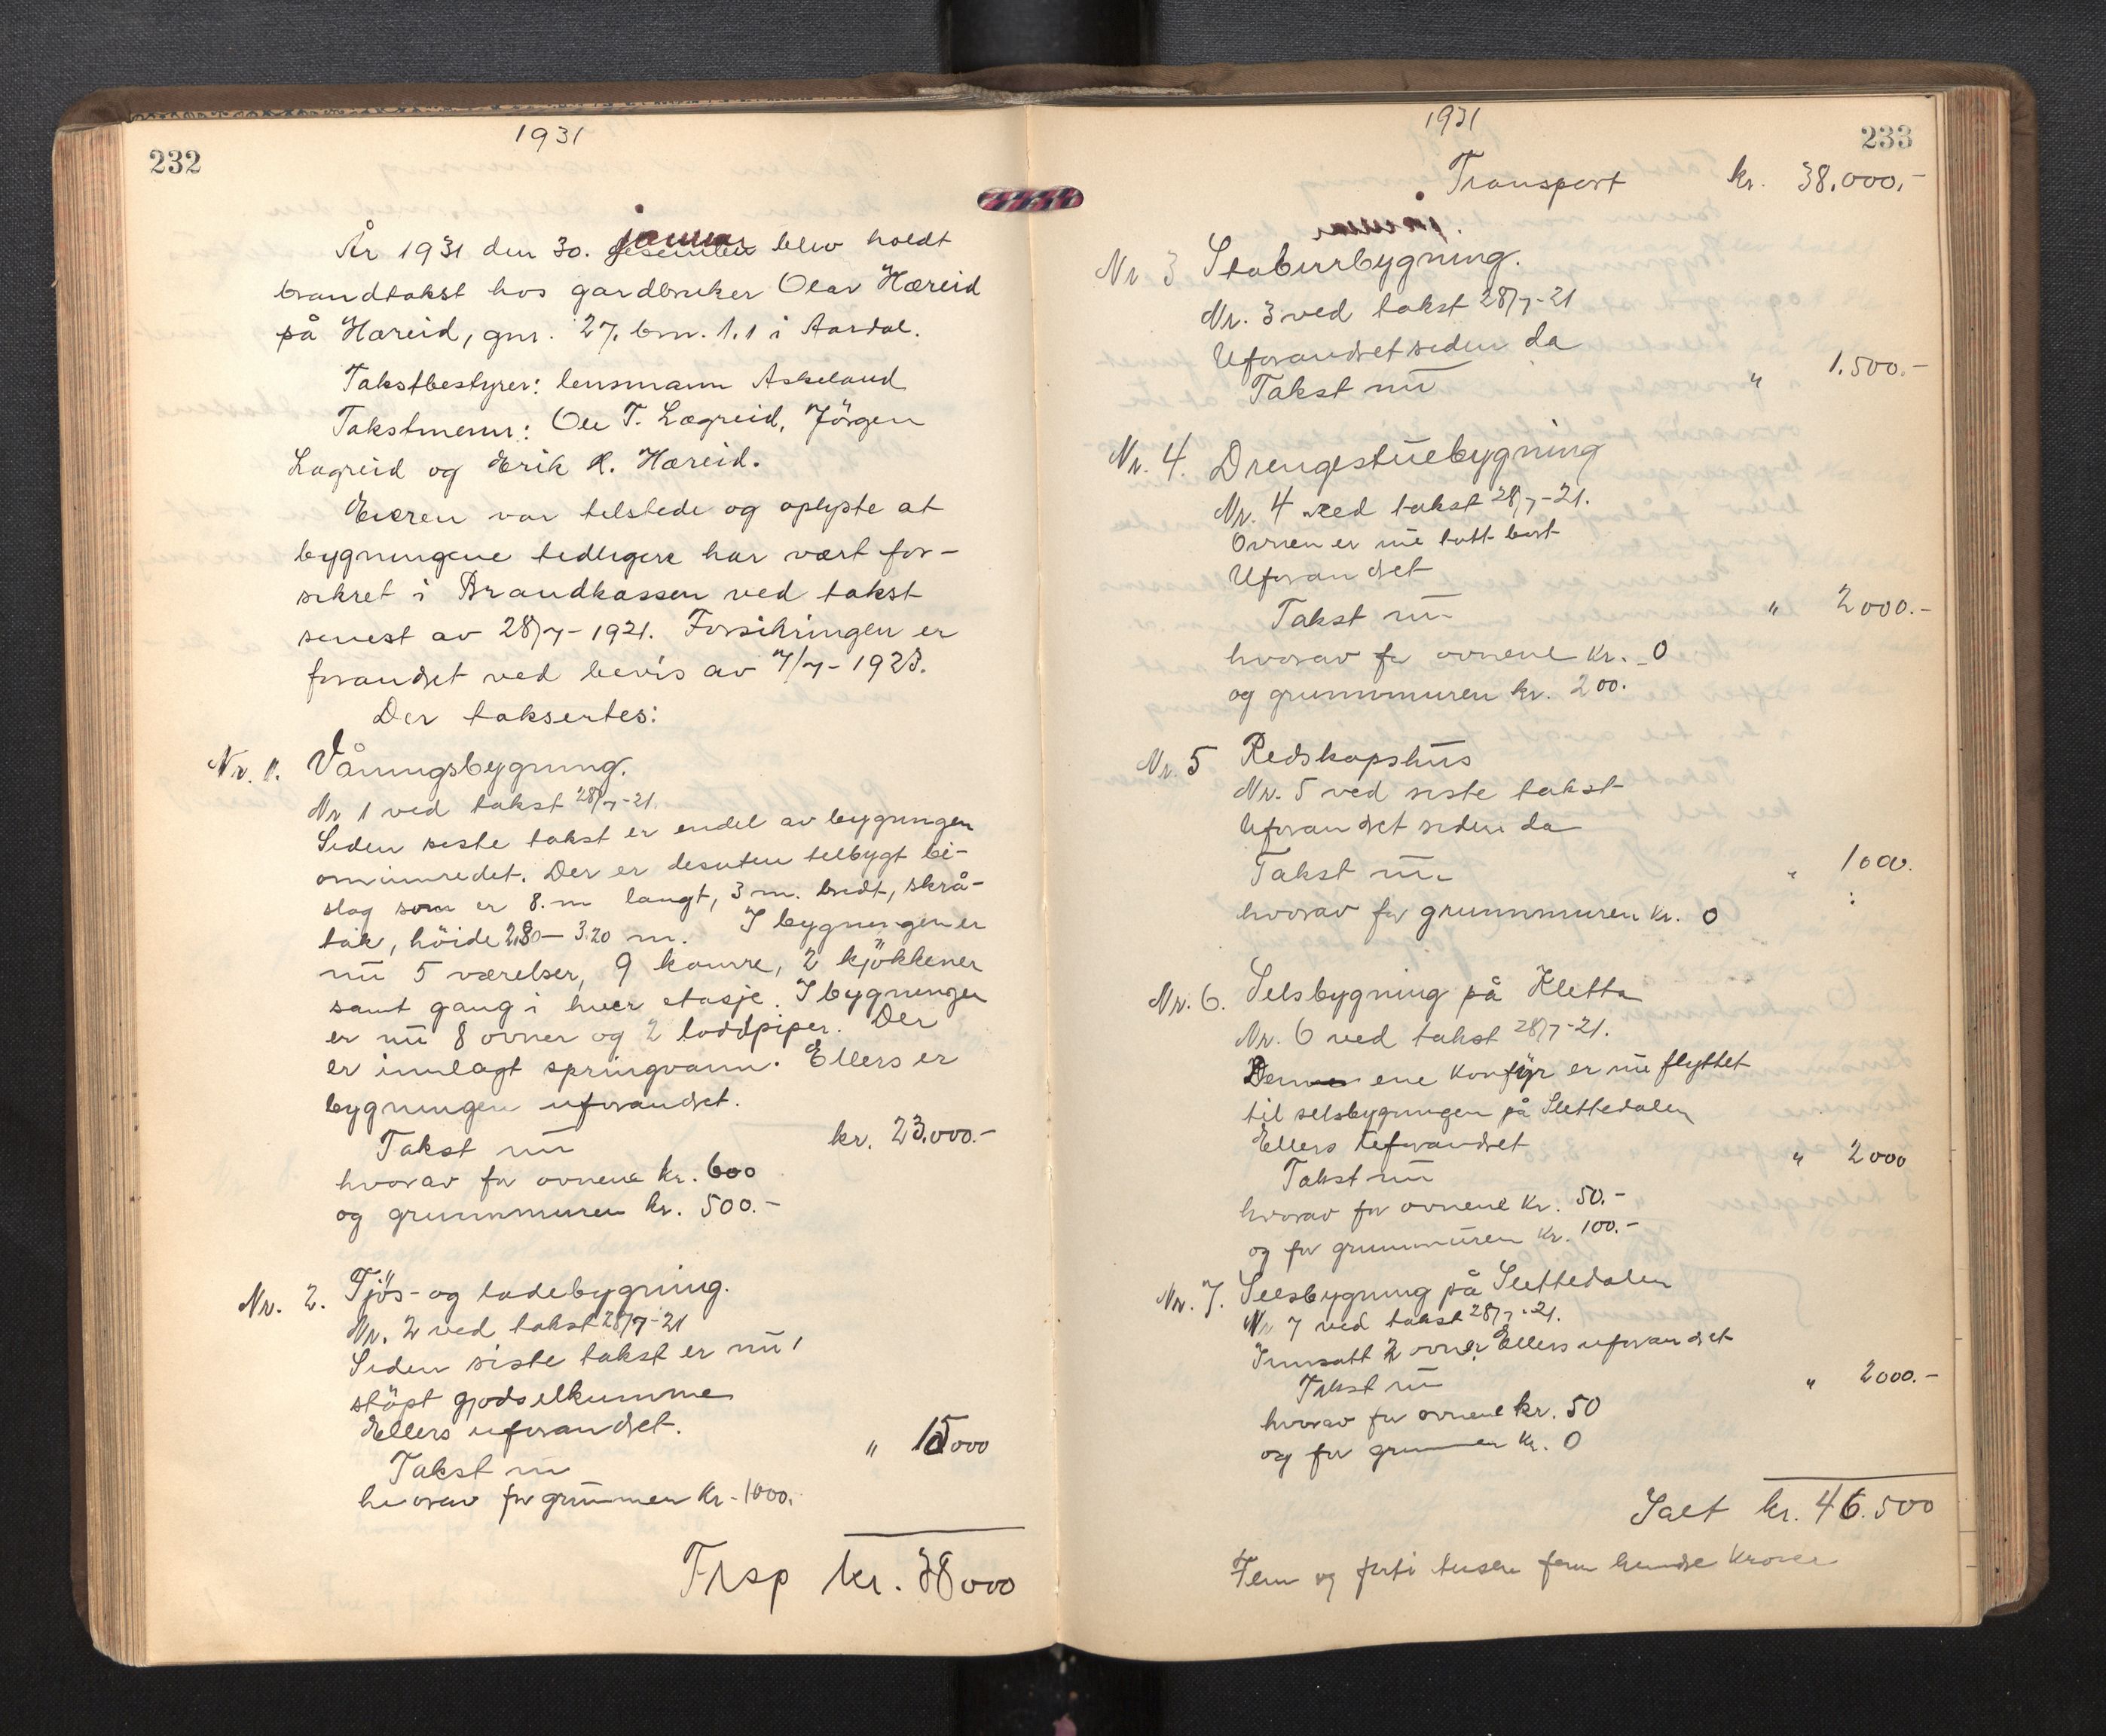 232
1931
År 1931 den 30. januar blev holdt
brandtakst hos gardbruker Olav Hæreid
på Hæreid, gnr. 27, brn. 1.1 i Aardal.
Takstbestyrer: lensmann Askeland
Takstmenn: Ole T. Lægreid, Jörgen
Lægreid og Erik K. Hæreid.
Eieren var tilstede og oplyste at
bygningene tidligere har vært for-
sikret i Brandkassen ved takst
senest av 28/7-1921. Forsikringen er
forandret ved bevis av 7/7-1923.
Der taksertes:
Nr. 1. Våningsbygning.
Nr 1 ved takst 28/7-21.
Siden siste takst er endel av bygningen
ominnredet. Der er desuten tilbygt bi-
slag som er 8. m langt, 3 m. bredt, skrå-
tak, höide 2.80 – 3.20 m. I bygningen er
nu 5 værelser, 9 kamre, 2 kjökkener
samt gang i hver etasje. I bygningen
er nu 8 ovner og 2 loddpiper. Der
er innlagt springvann. Ellers er
bygningen uforandret.
Takst nu kr. 23.000.-
hvorav for ovnene kr. 600
og grunnmuren kr. 500.-
Nr. 2. Fjös- og ladebygning.
Nr. 2 ved takst 28/7-21
Siden siste takst er nu
stöpt gjodselkumme
Ellers uforandret.
Takst nu " 15000
hvorav for grunmen kr. 1000.
Trsp kr. 38000
233
1931
Transport kr. 38.000.-
Nr 3 Staburrbygning.
Nr. 3 ved takst 28/7-21
Uforandret siden da
Takst nu " 1.500.-
Nr. 4. Drengestuebygning
Nr. 4 ved takst 28/7-21.
Ovnen er nu tatt bort
Uforandret
Takst nu " 2000.-
hvorav for ovnene kr. 0
og grunnmuren kr. 200.
Nr. 5 Redskapshus
Nr. 5 ved siste takst
Uforandret siden da
Takst nu " 1000.
hvorav for grunnmuren kr. 0
Nr. 6. Selsbygning på Kletta
Nr. 6 ved takst 28/7-21.
Den ene konfyr er nu flyttet
til selsbygningen på Slettedalen
Ellers uforandret
Takst nu " 2000
hvorav for ovnene kr. 50.-
og for grunnmuren kr. 100.-
Nr. 7. Selsbygning på Slettedalen
Nr 7 ved takst 28/7-21.
Innsatt 2 ovner. Ellers uforandret
Takst nu " 2000.-
hvorav for ovnene kr. 50
og for grunmen kr. 0
Ialt kr. 46.500
Fem og firti tusen fem hundre kroner